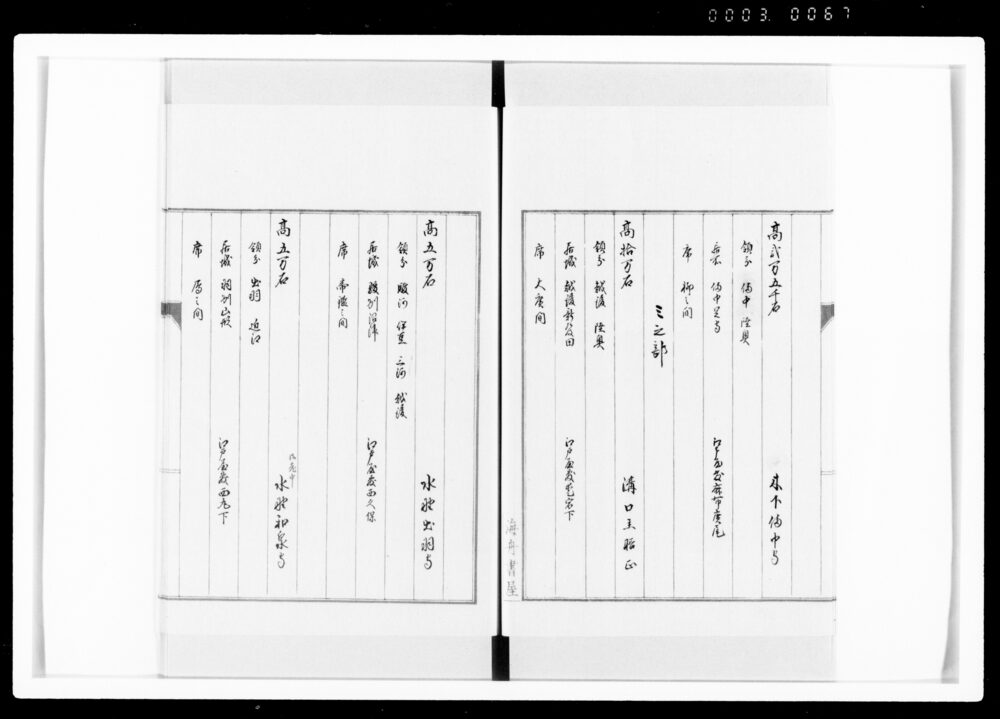 0003. 0067
高弐万五千石
木下備中守
領分 備中 陸奥
備中足守
江戸屋敷麻布広尾
席 柳之間
三之部
高拾万石
溝口主膳正
領分 越後 陸奥
居城 越後新発田
江戸屋敷
下
席 大廣間
海舟書屋
高五万石
水野出羽守
領分 駿河 伊豆 三河 越後
居城 駿州沼津
江戸屋敷西久保
席 帝鑑之間
高五万石
御老中
水野和泉守
領分 出羽 近江
居城 羽州山形
江戸屋敷西丸下
席 雁之間